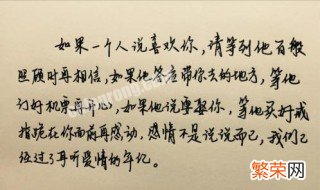 如果一个人说喜欢你，请等到他百般
照顾时再相信，如果他答应带你去的地方，等他
订好机票再开心，如果他说要娶你，等他买好戒
指跪在你面前再感动，感情不是说说而已，我们已
经过了耳听爱情的年纪。
繁荣网